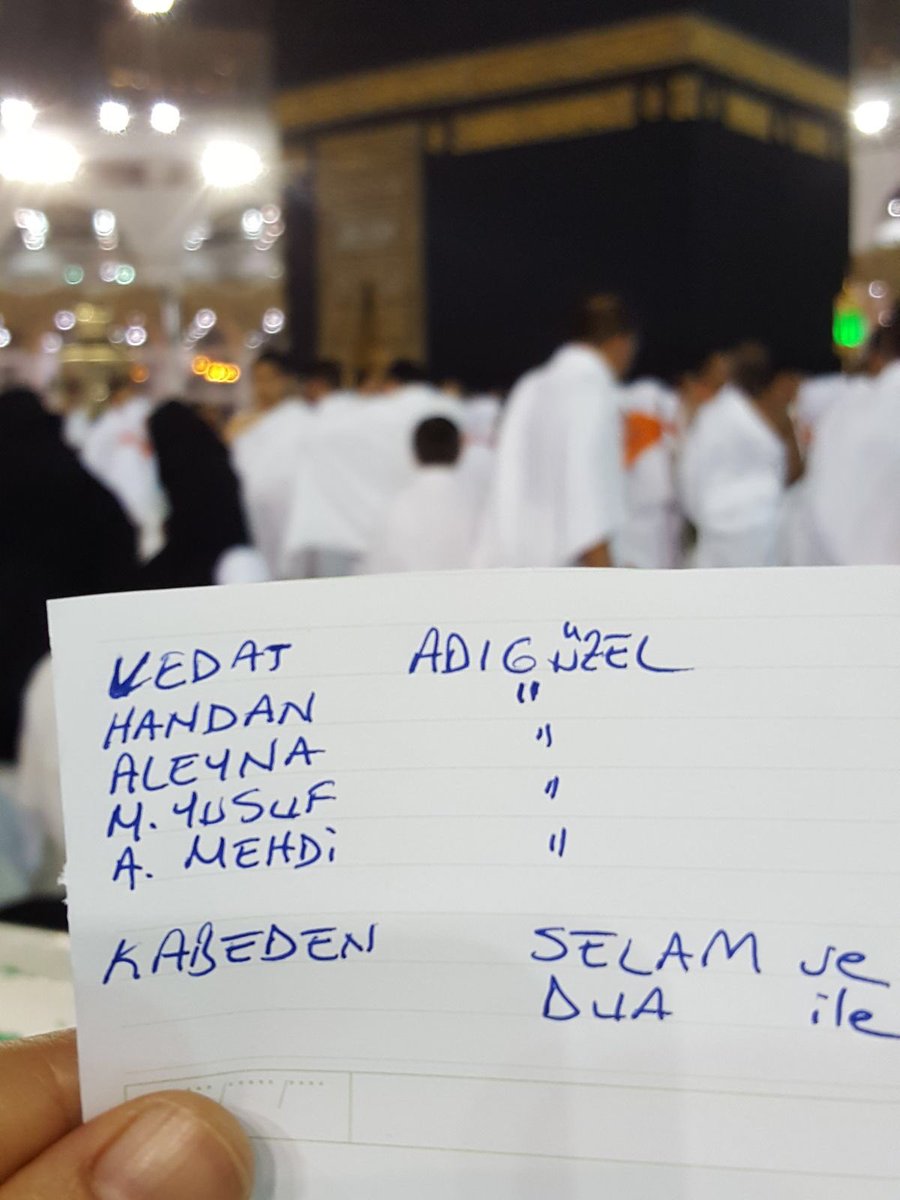 VEDAT ADIGÜZEL
HANDAN "
ALEYNA "
M. YUSUF "
A. MEHDİ "
KABEDEN SELAM ve
DUA ile